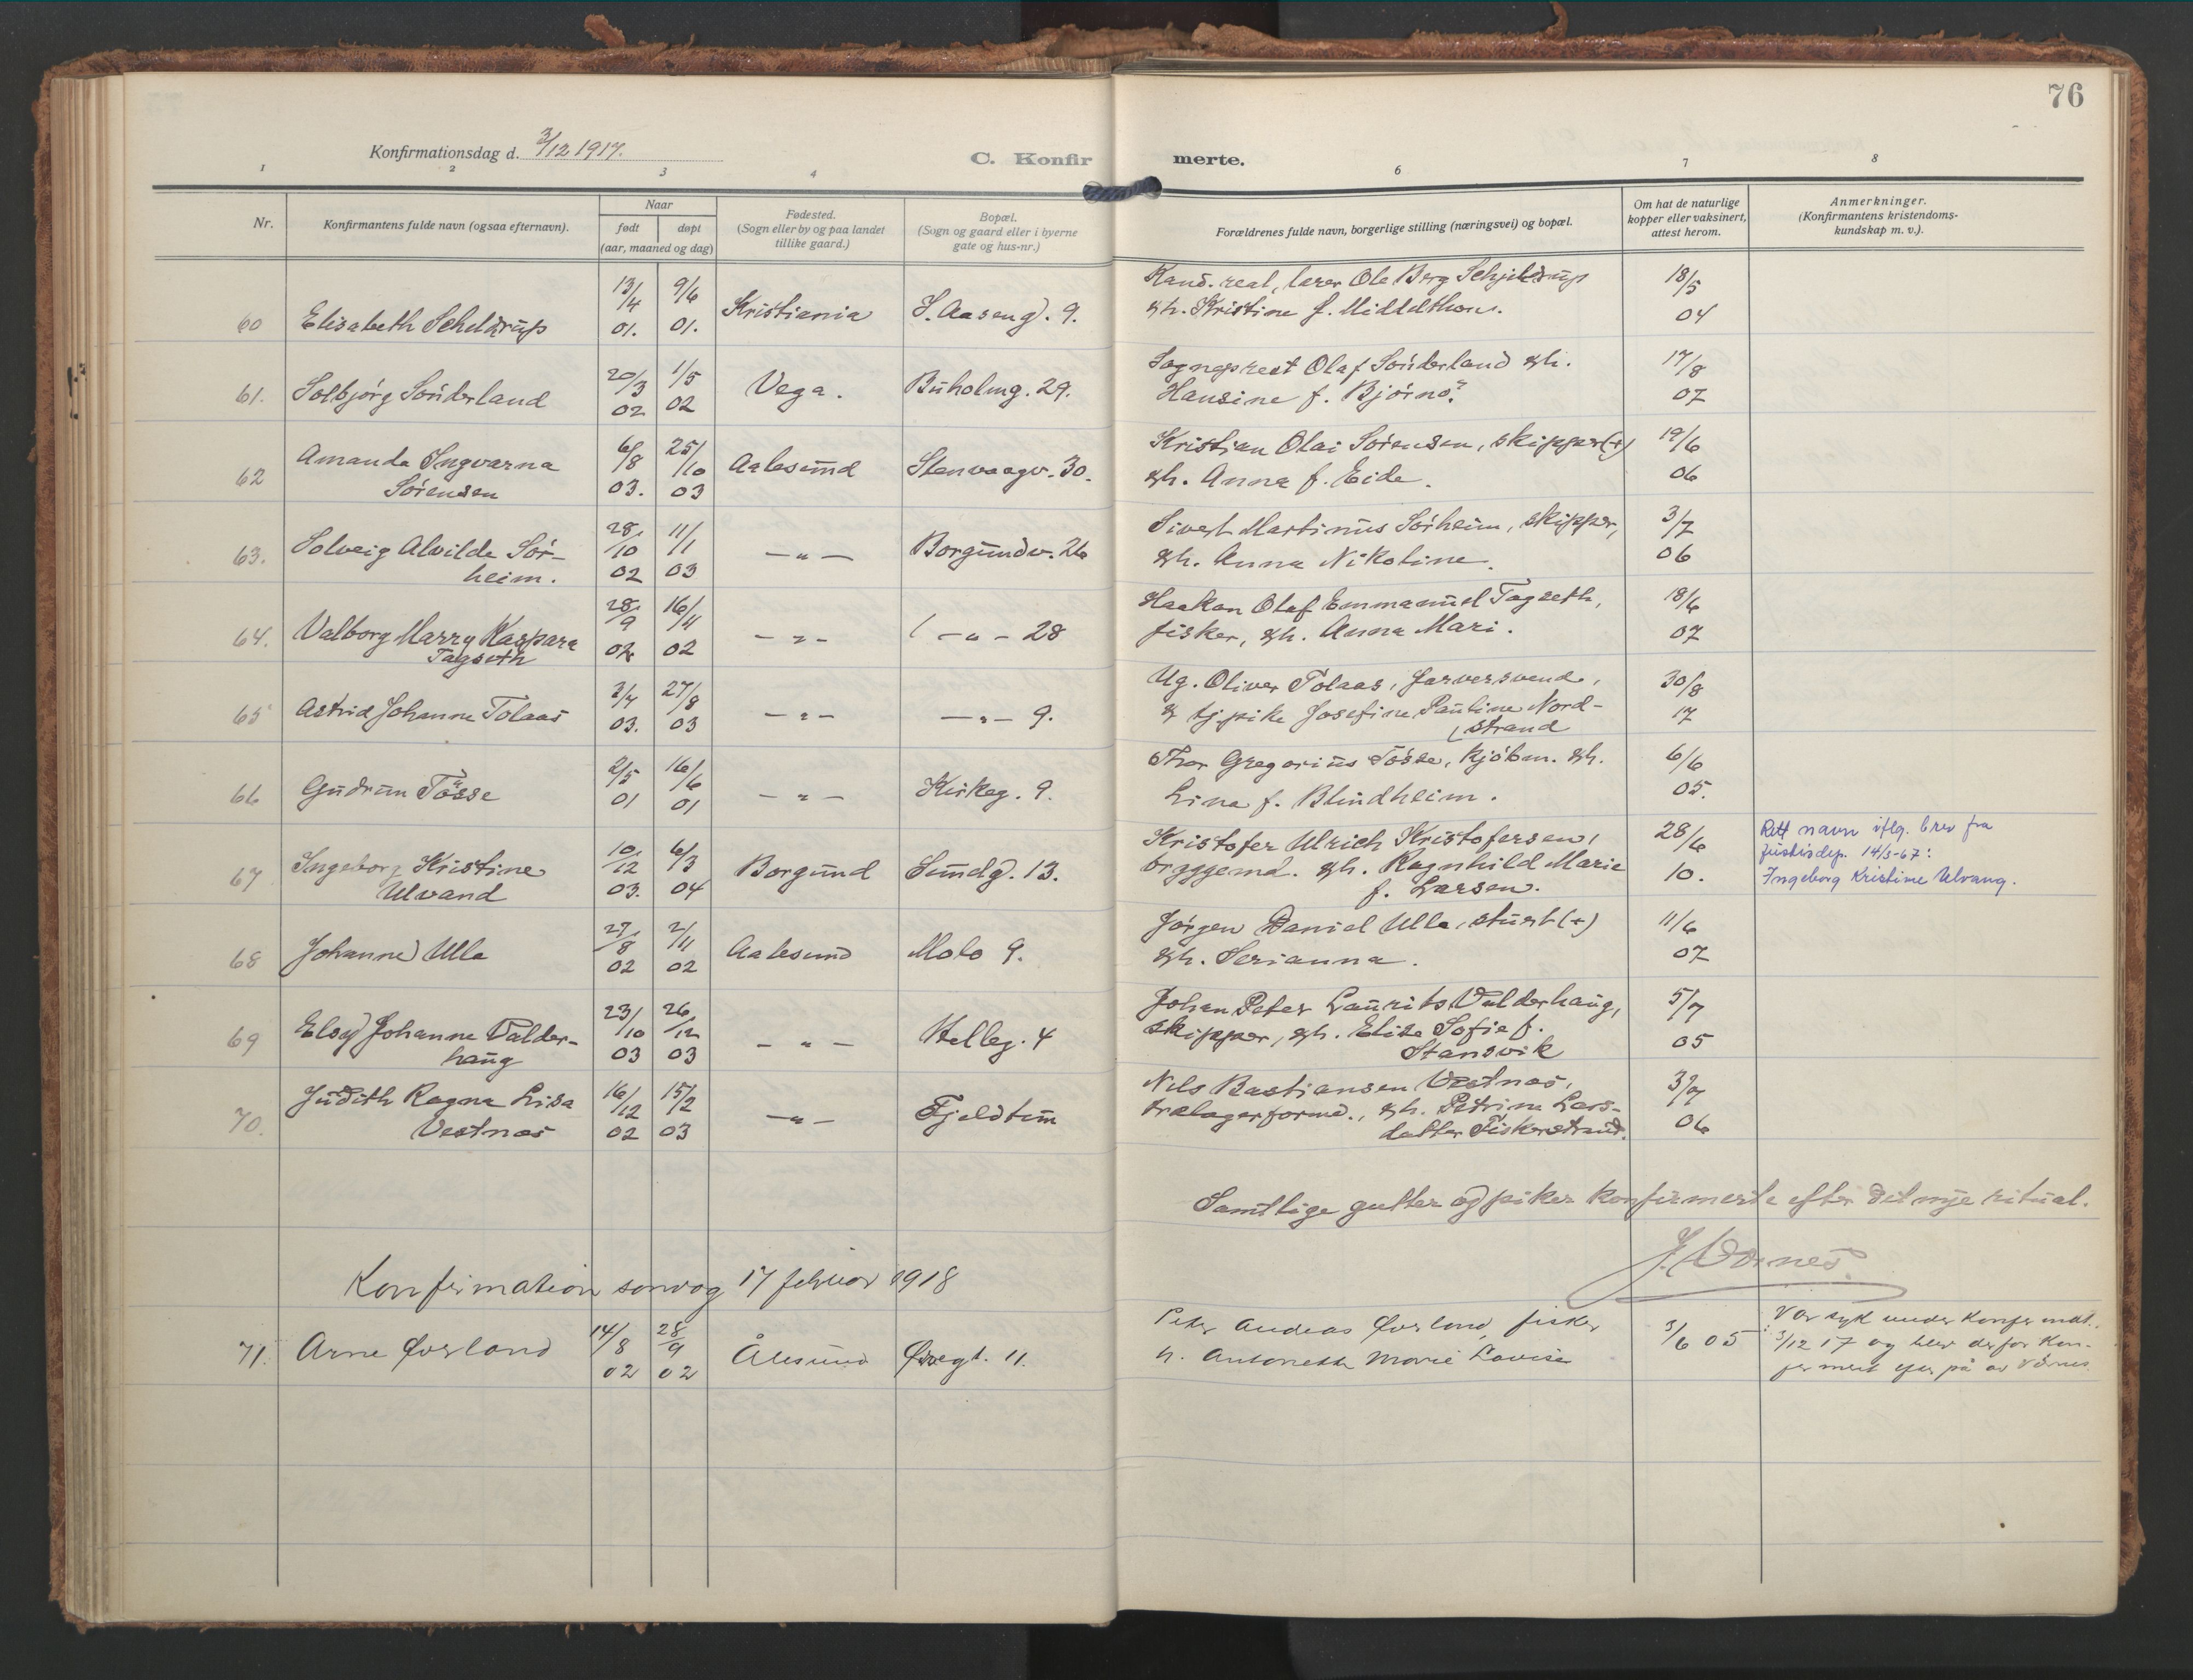 76
Konfirmationsdag d. 3/12 1917.
C. Konfirmerte.
1 2 3 4 6 7 8
Nr.
Konfirmantens fulde navn (ogsaa efternavn).
Naar
født døpt
(aar, maaned og dag)
Fødested.
(Sogn eller by og paa landet
tillike gaard.)
Bopæl.
(Sogn og gaard eller i byerne
gate og hus-nr.)
Forældrenes fulde navn, borgerlige stilling (næringsvei) og bopæl.
Om hat de naturlige
kopper eller vaksinert,
attest herom.
Anmerkninger.
(Konfirmantens kristendoms-
kundskap m. v.).
60 Elisabeth Scheldrup 13/4 01. 9/6 01. Kristiania I. Aaseng. 9.
Kand. real, lærer Ole Berg Schjeldrup
& h. Kristine f. Middelthon.
18/5 04
61. Solbjørg Sønderland 20/3 02 1/5 02 Vega. Buholmg. 29.
Sogneprest Olaf Sønderland & h.
Hansine f. Bjørnø.
17/8 07
62 Amanda Ingvarna
Sørensen 6/8 03. 25/10 03 Aalesund Stenvaagv. 30.
Kristian Olai Sørensen, skipper (+)
& h. Anna f. Eide.
19/6 06
63. Solveig Alvilde Sør-
heim. 28/10 02 11/1 03 — " — Borgundv. 26
Sivert Martinus Sørheim, skipper,
& h. Anna Nikoline.
3/7 06
64. Valborg Marry Kaspara
Tagseth 28/9 02 16/11 02 — " — — " — 28
Haakon Olaf Emmanuel Tagseth,
fisker, & h. Anna Mari.
18/6 07
65 Astrid Johanne Tolaas 3/7 03. 27/8 03 — " — — " — 9.
Ug. Oliver Tolaas, farversvend,
& tj.pike Josefine Pauline Nord-
strand
30/8 17
66 Gudrun Tøsse 2/5 01 16/6 01 — " — Kirkeg. 9.
Thor Gregorius Tøsse, kjøbm. & h.
Lina f. Blindheim.
6/6 05.
67 Ingeborg Kristine
Ulvand 10/12 03. 6/3 04 Borgund Sundg. 13.
Kristofer Ulrich Kristofersen,
bryggemd. & h. Ragnhild Marie
f. Larsen.
28/6 10.
Rett navn iflg. brev fra
Justisdep. 14/3-67:
Ingeborg Kristine Ulvang.
68 Johanne Ulla 27/8 02 2/11 02 Aalesund Molo 9.
Jørgen Daniel Ulla, stuert (+)
& h. Serianna.
11/6 07
69 Elsy Johanne Valder-
haug 23/10 03 26/12 03 — " — Helleg. 4
Johan Peter Laurits Valderhaug,
skipper, & h. Elise Sofie f.
Stansvik
5/7 05
70. Judith Ragna Lisa
Vestnæs 16/12 02 15/2 03 — " — Fjeldtun
Nils Bastiansen Vestnæs,
trælagerformd., & h. Petrine Lars-
datter Fiskerstrand.
3/7 06
Samtlige gutter og piker konfirmerte efter det nye ritual.
J. Værnes.
Konfirmation søndag 17 februar 1918
71. Arne Øvsland 14/8 02 28/9 02 Ålesund Øvregt. 11.
Peter Andreas Øvsland, fisker
h. Antonette Marie Lovise
3/6 05
Var syk under konfirmat.
3/12 17 og blev derfor kon-
firmert